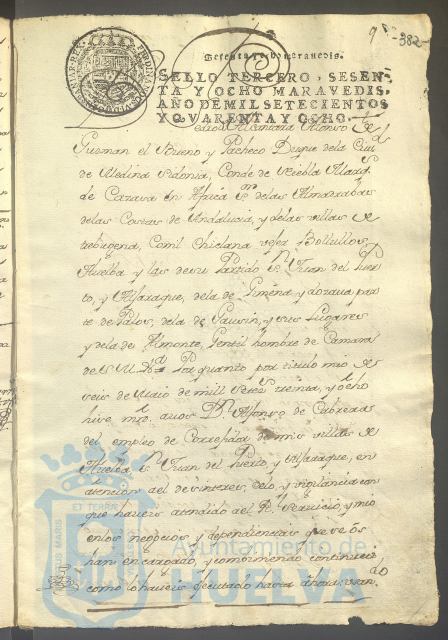 9 382
Sesenta y ocho maravedis.
SELLO TERCERO, SESEN-
TA Y OCHO MARAVEDIS,
AÑO DE MIL SETECIENTOS
Y QVARENTA Y OCHO.
Pedro de Alcantara Alonso
Guzman el Bueno y Pacheco Duque dela Ciu.d
de Medina Sidonia, Conde de Niebla Marq.s
de Cazaza en Africa S.or delas Almadrabas
delas Costas de Andalucia, y delas villas de
trebugena, Conil Chiclana vejer Bollullos,
Huelba y las de su Partido S.n Juan del Puer
to, y Aljaraque, dela de Ximena y dozava par
te de Palos, dela de Gausin, y sus Lugares
y dela de Almonte, Gentil hombre de Camara
de S. M. &.a Por quanto por titulo mio de
seis de Maio de mill setez.s treinta, y ocho
hize mrd. avos D.n Alfonso de Cabreras
del empleo de Correg.or de mis villas de
Huelba S.n Juan del Puerto, y Aljaraque, en
atencion ael desinteres, zelo, y vigilancia con
que haveis atendido ael R.l servicio, y mio
enlos negocios y dependencias que se os
han encargado, y combiniendo continueis
como lo haveis executado hasta ahora
Ayuntamiento de
HUELVA